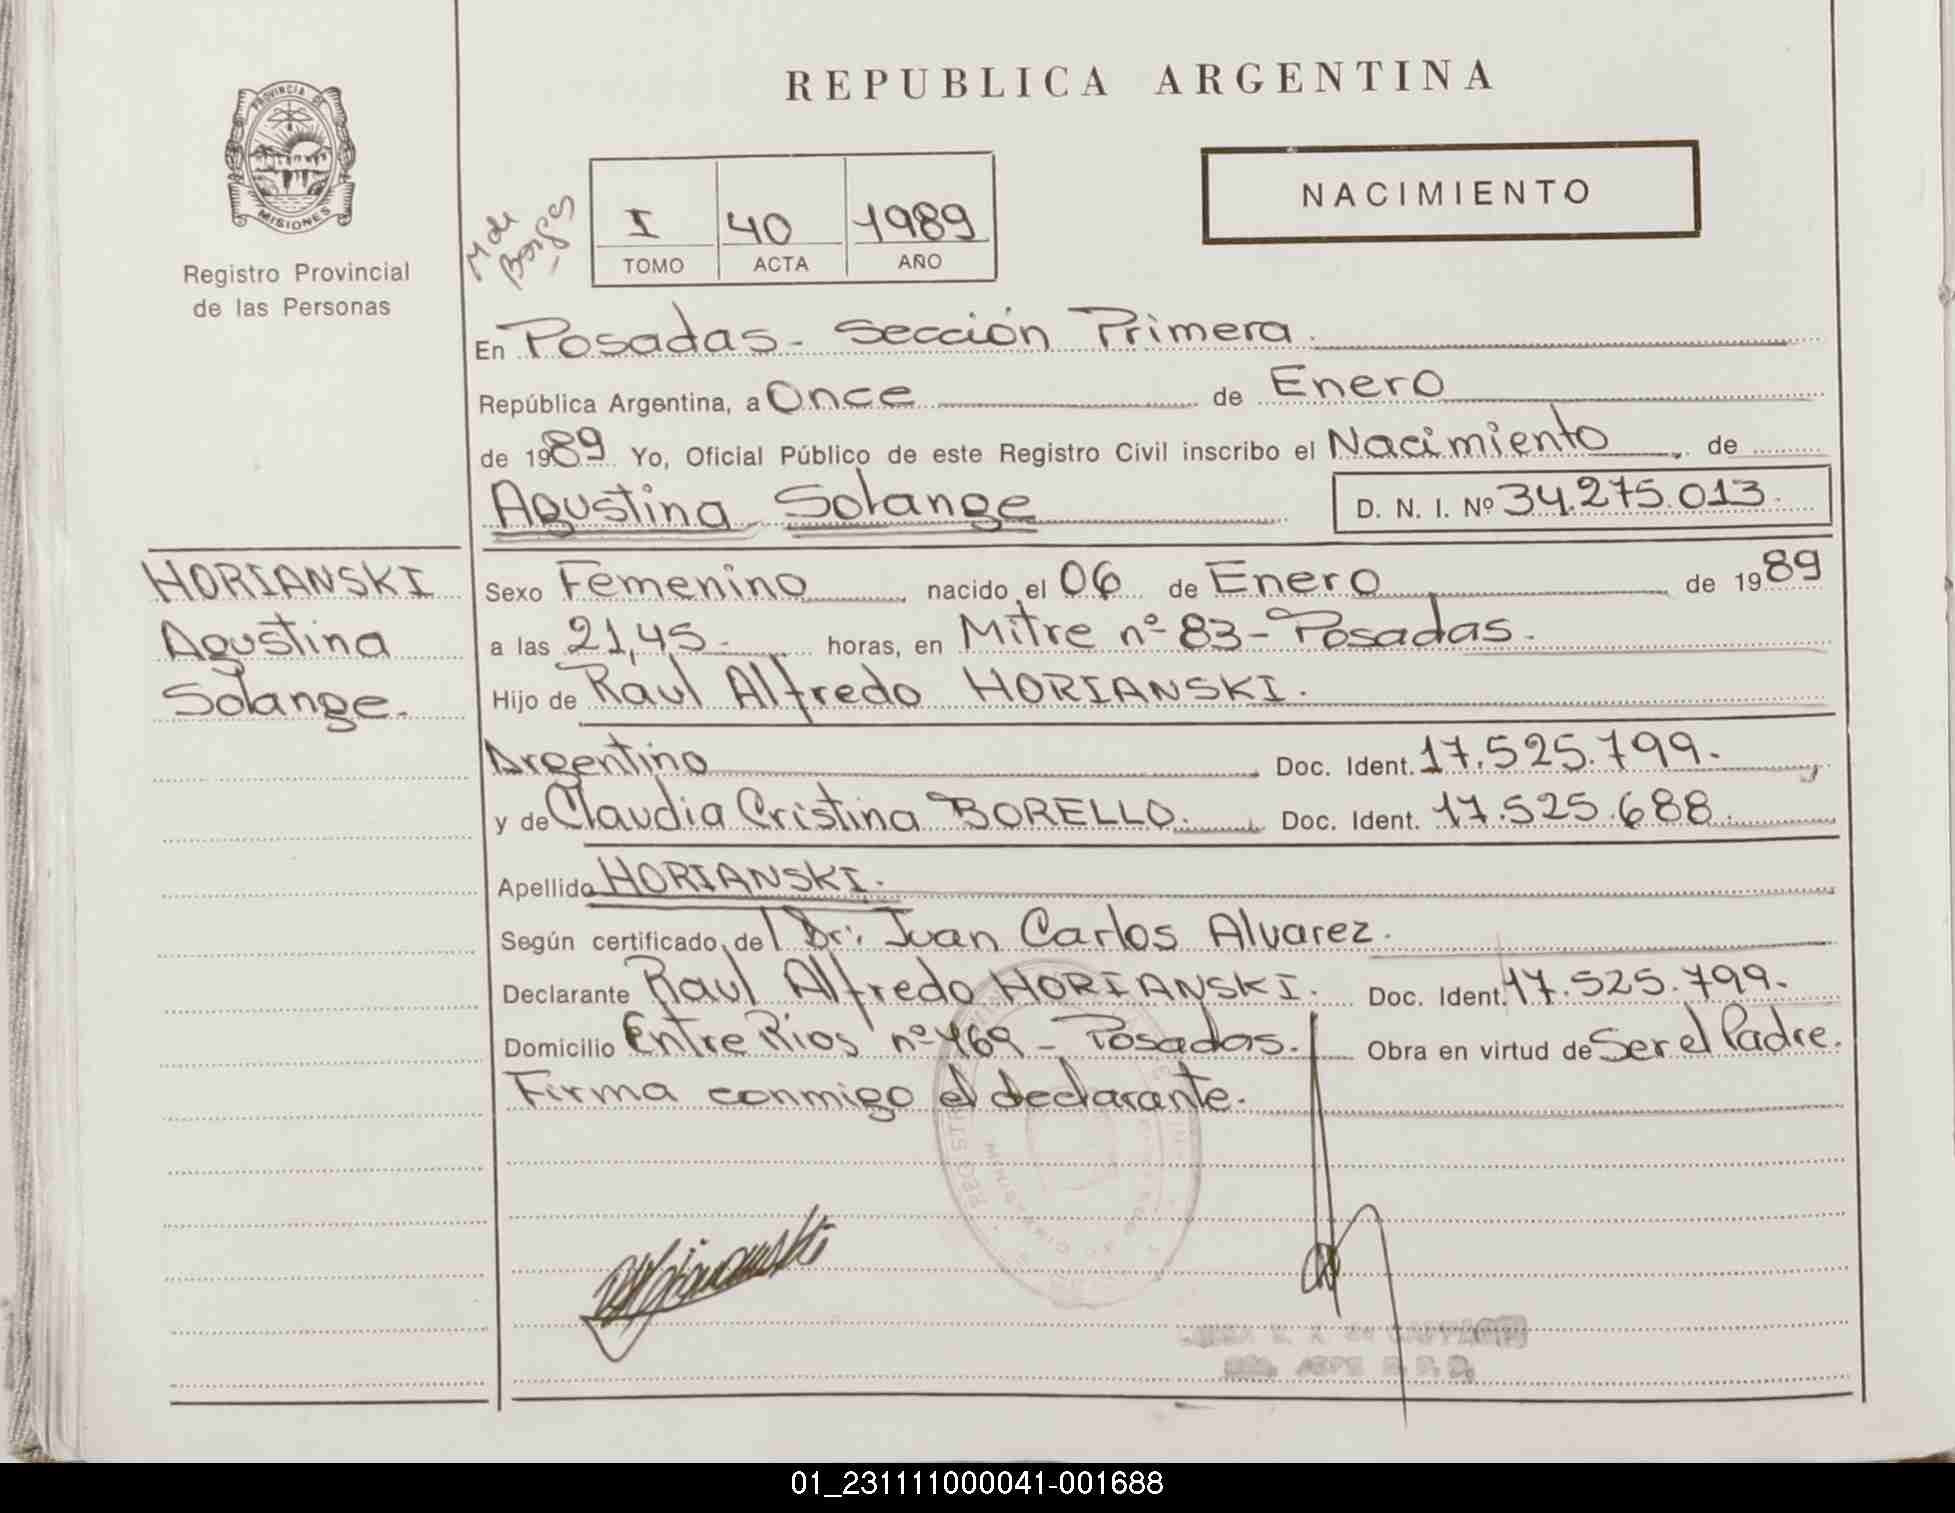 REPUBLICA ARGENTINA
PROVINCIA DE
MISIONES
Registro Provincial
de las Personas
M de
Borges
I 40 1989
TOMO ACTA AÑO
NACIMIENTO
En Posadas - Sección Primera.
República Argentina, a Once de Enero
de 1989 Yo, Oficial Público de este Registro Civil inscribo el Nacimiento, de
Agustina Solange D. N. I. Nº 34.275.013.
HORIANSKI
Agustina
Solange.
Sexo Femenino nacido el 06 de Enero de 1989
a las 21,45 horas, en Mitre nº 83 - Posadas.
Hijo de Raul Alfredo HORIANSKI.
Argentino Doc. Ident. 17.525.799.
y de Claudia Cristina BORELLO. Doc. Ident. 17.525.688.
Apellido HORIANSKI.
Según certificado, del Dr. Juan Carlos Alvarez.
Declarante Raul Alfredo HORIANSKI. Doc. Ident. 17.525.799.
Domicilio Entre Rios nº 469 - Posadas. Obra en virtud de Ser el Padre.
Firma conmigo el declarante.
01_231111000041-001688